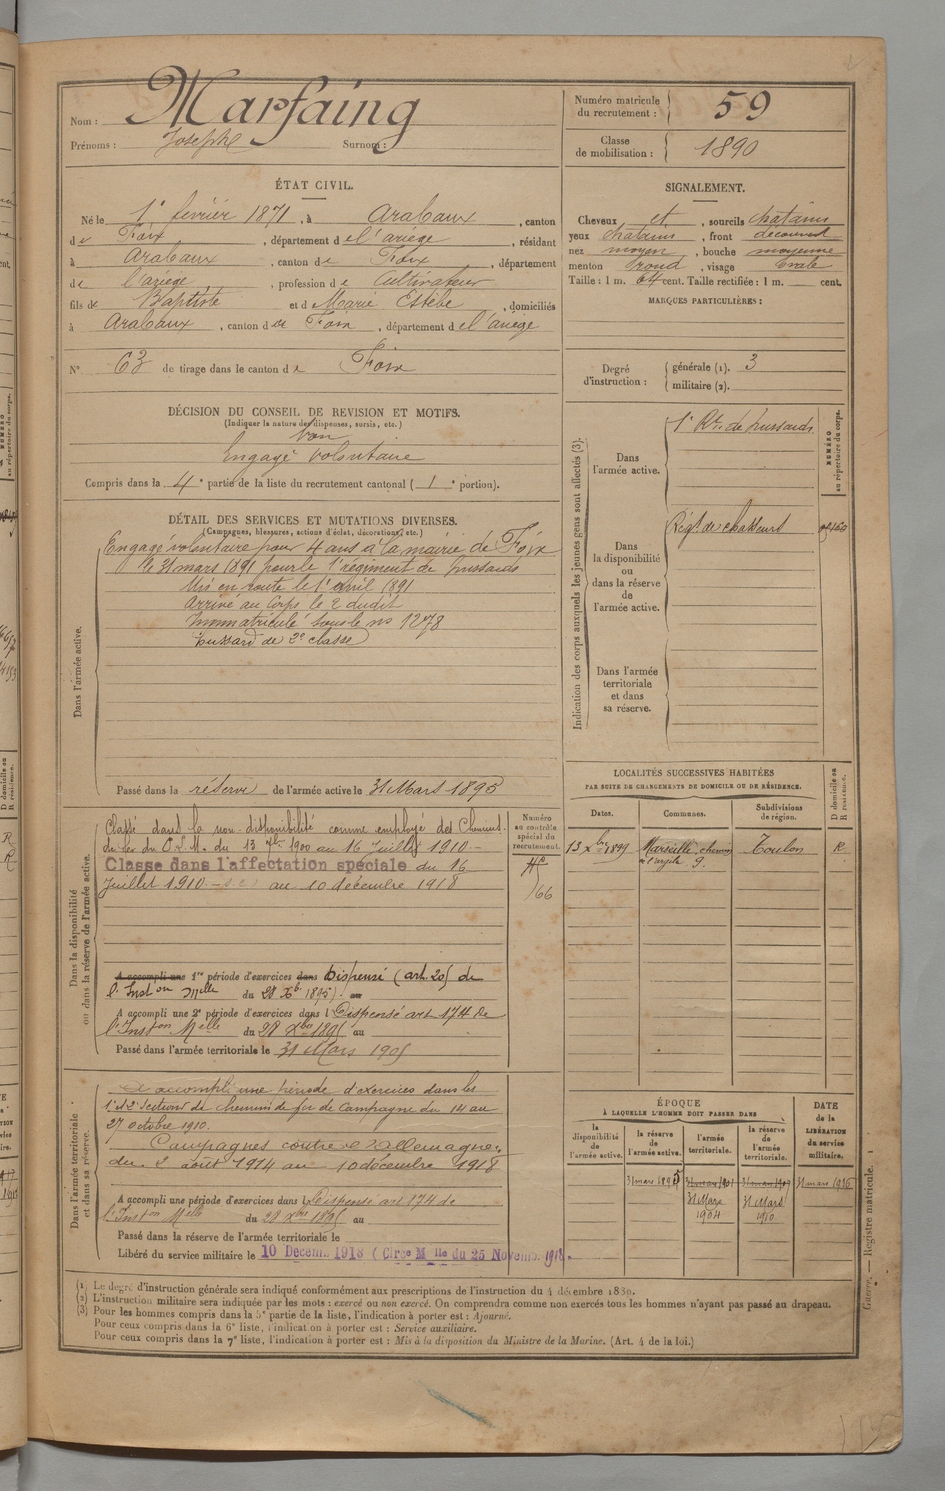 Nom : Marfaing
Prénoms : Joseph Surnom :
Numéro matricule du recrutement : 59
Classe de mobilisation : 1890
ÉTAT CIVIL.
Né le 1er février 1871, à Arabaux, canton
de Foix, département de l'ariège, résidant
à Arabaux, canton de Foix, département
de l'ariège, profession de Cultivateur
fils de Baptiste et de Marie Estèbe, domiciliés
à Arabaux, canton de Foix, département de l'ariège
N° 63 de tirage dans le canton de Foix
SIGNALEMENT.
Cheveux et, sourcils chatains
yeux chatains, front découvert
nez moyen, bouche moyenne
menton rond, visage ovale
Taille : 1 m. 64 cent. Taille rectifiée : 1 m. cent.
MARQUES PARTICULIÈRES :
Degré d'instruction :
générale (1). 3
militaire (2).
DÉCISION DU CONSEIL DE REVISION ET MOTIFS.
(Indiquer la nature des dispenses, sursis, etc.)
bon
Engagé volontaire
Compris dans la 4e partie de la liste du recrutement cantonal (1e portion).
DÉTAIL DES SERVICES ET MUTATIONS DIVERSES.
(Campagnes, blessures, actions d'éclat, décorations, etc.)
Dans l'armée active.
Engagé volontaire pour 4 ans à la mairie de Foix
le 31 mars 1891 pour le 1er régiment de hussards
Mis en route le 1er avril 1891
Arrivé au Corps le 2 dudit
Immatriculé sous le no 1278
hussard de 2e classe
Passé dans la réserve de l'armée active le 31 Mars 1895
Indication des corps auxquels les jeunes gens sont affectés (3).
NUMÉRO au répertoire du corps.
Dans l'armée active.
1er Rt. de hussards
Dans la disponibilité ou dans la réserve de l'armée active.
Régt de chasseurs
Dans l'armée territoriale et dans sa réserve.
Dans la disponibilité ou dans la réserve de l'armée active.
Classé dans la non-disponibilité comme employé des Chemins
de fer du P.L.M. du 13 Xbre 1900 au 16 Juillet 1910 -
Classe dans l'affectation spéciale du 16
Juillet 1910 - au 10 décembre 1918
Numéro au contrôle spécial du recrutement.
66
A accompli une 1re période d'exercices dans Dispensé (art. 20) de
l'Inston Melle du 28 Xb. 1895). au
A accompli une 2e période d'exercices dans l Dispensé art 174 de
l'Inston Melle du 28 Xbre 1895 au
Passé dans l'armée territoriale le 31 Mars 1905
Dans l'armée territoriale et dans sa réserve.
A accompli une période d'exercices dans les
1e et 2e sections de chemin de fer de Campagne du 14 au
27 octobre 1910.
Campagnes contre l'Allemagne,
du 2 août 1914 au 10 décembre 1918
A accompli une période d'exercices dans l Dispensé art 174 de
l'Inston Melle du 28 Xbre 1895 au
Passé dans la réserve de l'armée territoriale le
Libéré du service militaire le 10 Décemb. 1918 (Circe Mlle du 25 Novemb. 1918.
LOCALITÉS SUCCESSIVES HABITÉES
PAR SUITE DE CHANGEMENTS DE DOMICILE OU DE RÉSIDENCE.
Dates. Communes. Subdivisions de région. D domicile ou R résidence.
13 Xbre 1899 Marseille, chemin de l'argile 9. Toulon R
ÉPOQUE
À LAQUELLE L'HOMME DOIT PASSER DANS
DATE de la LIBÉRATION du service militaire.
la disponibilité de l'armée active. la réserve de l'armée active. l'armée territoriale. la réserve de l'armée territoriale.
31 mars 1895 31 mars 1901 31 mars 1909 31 mars 1916
31 Mars 1904 31 Mars 1910
(1) Le degré d'instruction générale sera indiqué conformément aux prescriptions de l'instruction du 4 décembre 1889.
(2) L'instruction militaire sera indiquée par les mots : exercé ou non exercé. On comprendra comme non exercés tous les hommes n'ayant pas passé au drapeau.
(3) Pour les hommes compris dans la 5e partie de la liste, l'indication à porter est : Ajourné.
Pour ceux compris dans la 6e liste, l'indication à porter est : Service auxiliaire.
Pour ceux compris dans la 7e liste, l'indication à porter est : Mis à la disposition du Ministre de la Marine. (Art. 4 de la loi.)
Guerre. — Registre matricule. 1